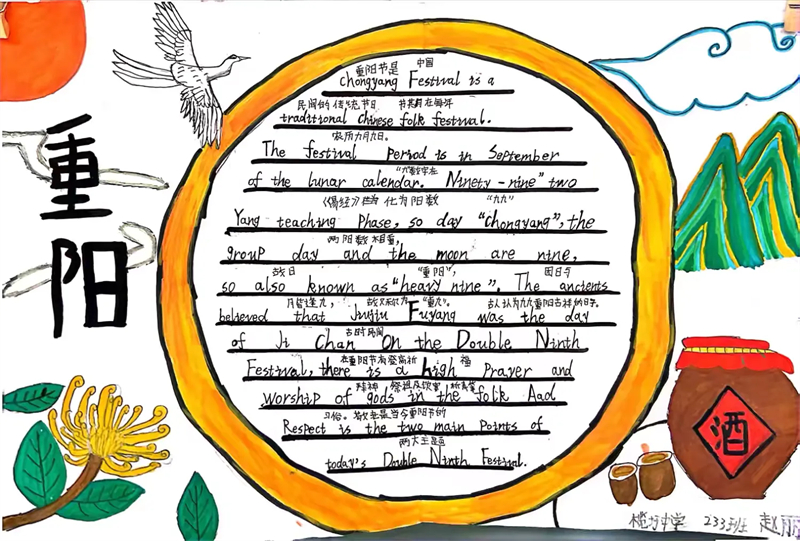 重阳
重阳节是 中国
Chongyang Festival is a
民间的传统节日 节其时在每年
traditional chinese folk festival.
农历九月九日。
The festival period is in September
"九"数字在
of the lunar calendar. Ninety-nine" two
化为阳数 "九九"
Yang teaching Phase, so day "chongyang", the
两阳数相重,
group day and the moon are nine,
故日 "重阳",
so also known as "heavy nine". The ancients
故又称为 "重九"。 古人认为九九重阳吉祥的日子。
believed that Jiujiu Fuyang was the day
古时民间
of Ji Chan On the Double Ninth
在重阳节有登高祈 福
Festival, there is a high Prayer and
worship of gods in the folk Aad
习俗。 敬老是当今重阳节的
Respect is the two main Points of
两大主题
today's Double Ninth Festival.
酒
中学 233班 赵丽